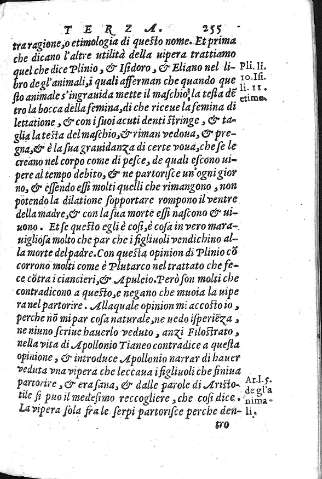 TERZA. 255
tra ragione, o etimologia di questo nome. Et prima
che dicano l'altre utilità della uipera trattiamo
quel che dice Plinio, & Isidoro, & Eliano nel li-
bro degl'animali, i quali afferman che quando que
sto animale s'ingrauida mette il maschio la testa dē
tro la bocca della femina, di che riceue la femina di
lettatione, & con i suoi acuti denti stringe, & ta-
glia la testa del maschio, & riman vedoua, & pre-
gna, & è la sua grauidanza di certe voua, che se le
creano nel corpo come di pesce, de quali escono ui-
pere al tempo debito, & ne partorisce un'ogni gior
no, & essendo essi molti quelli che rimangono, non
potendo la dilatione sopportare rompono il ventre
della madre, & con la sua morte essi nascono & ui-
uono. Et se questo egli è così, è cosa in vero mara-
uigliosa molto che par che i figliuoli vendichino al-
la morte del padre. Con questa opinion di Plinio cō
corrono molti come è Plutarco nel trattato che fe-
ce cōtra i ciancieri, & Apuleio. Però son molti che
contradicono a questo, e negano che muoia la uipe
ra nel partorire. Alla quale opinion mi accosto io,
perche nō mi par cosa naturale, ne uedo isperiēza,
ne niuno scriue hauerlo veduto, anzi Filostrato,
nella vita di Apollonio Tianeo contradice a questa
opinione, & introduce Apollonio narrar di hauer
veduta una vipera che leccaua i figliuoli che finiua
partorire, & era sana, & dalle parole di Aristo-
tile si puo il medesimo recogliere, che cosi dice.
La vipera sola fra le serpi partorisce perche den-
tro
Pli. li.
10. Isi.
li. 12.
etime.
Ar. l. 5.
de gl'a
nima-
li.